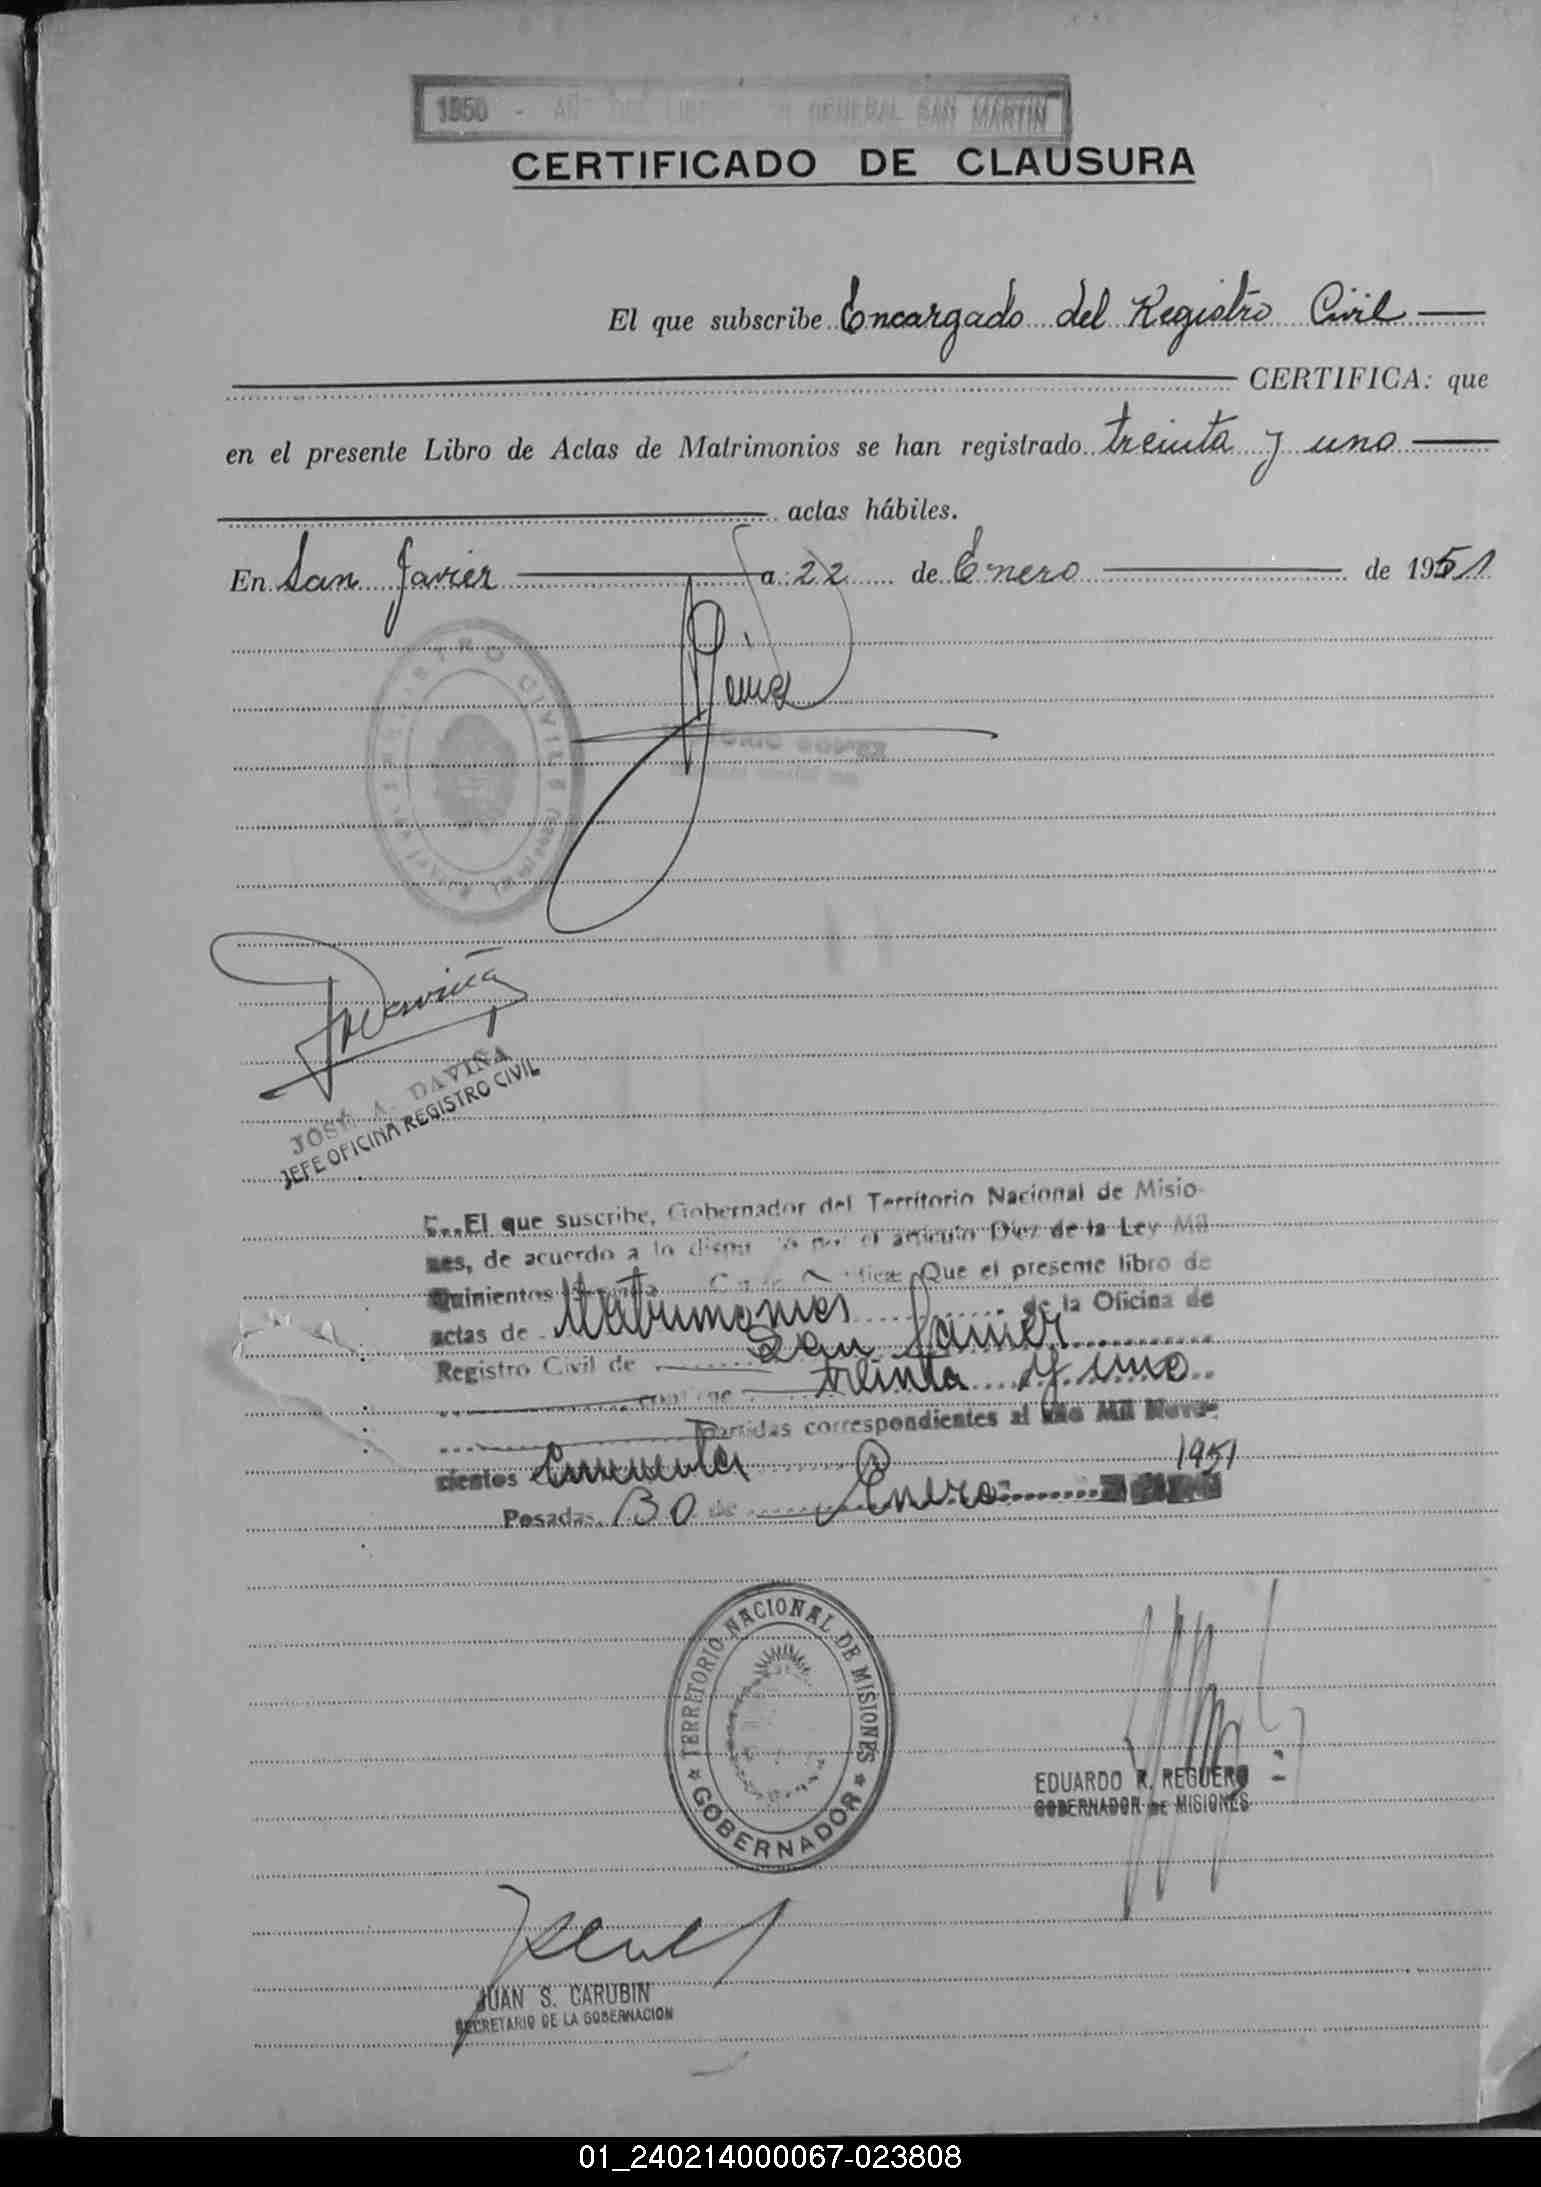 1950 - AÑO DEL LIBERTADOR GENERAL SAN MARTIN
CERTIFICADO DE CLAUSURA
El que subscribe Encargado del Registro Civil
CERTIFICA: que
en el presente Libro de Actas de Matrimonios se han registrado treinta y uno
actas hábiles.
En San Javier a 22 de Enero de 1951
REGISTRO CIVIL
JOSÉ A. DAVIÑA
JEFE OFICINA REGISTRO CIVIL
El que suscribe, Gobernador del Territorio Nacional de Misio-
nes, de acuerdo a lo dispuesto por el artículo Diez de la Ley Mil
Quinientos Que el presente libro de
actas de Matrimonios de la Oficina de
Registro Civil de San Javier
contiene treinta y uno
Partidas correspondientes al año Mil Nove-
cientos Cincuenta
Posadas, 30 de Enero 1951
TERRITORIO NACIONAL DE MISIONES
GOBERNADOR
EDUARDO R. REGUERO
GOBERNADOR DE MISIONES
JUAN S. CARUBIN
SECRETARIO DE LA GOBERNACION
01_240214000067-023808